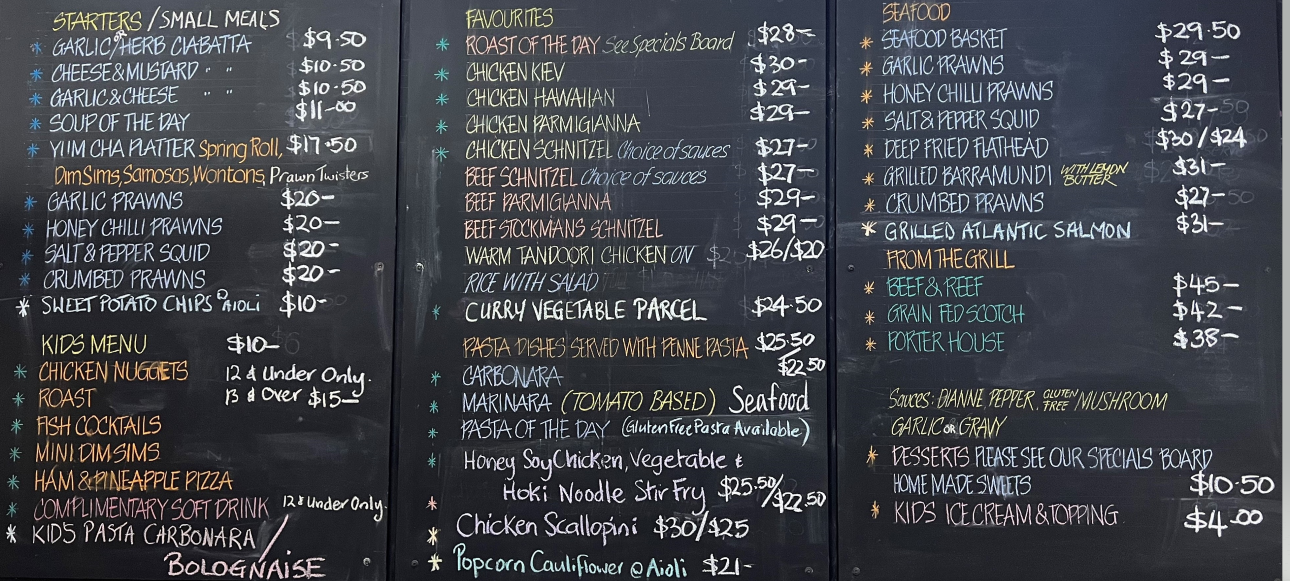 STARTERS / SMALL MEALS
GARLIC or HERB CIABATTA $9.50
CHEESE & MUSTARD " " $10.50
GARLIC & CHEESE " " $10.50
SOUP OF THE DAY $11-00
YUM CHA PLATTER Spring Roll, $17.50
Dim Sims, Samosas, Wontons, Prawn Twisters
GARLIC PRAWNS $20-
HONEY CHILLI PRAWNS $20-
SALT & PEPPER SQUID $20-
CRUMBED PRAWNS $20-
SWEET POTATO CHIPS @ AIOLI $10-
KIDS MENU $10-
CHICKEN NUGGETS 12 & Under Only.
ROAST 13 & Over $15-
FISH COCKTAILS
MINI DIM SIMS
HAM & PINEAPPLE PIZZA
COMPLIMENTARY SOFT DRINK 12 & Under Only.
KIDS PASTA CARBONARA /
BOLOGNAISE
FAVOURITES
ROAST OF THE DAY See Specials Board $28-
CHICKEN KIEV $30-
CHICKEN HAWAIIAN $29-
CHICKEN PARMIGIANNA $29-
CHICKEN SCHNITZEL Choice of sauces $27-
BEEF SCHNITZEL Choice of sauces $27-
BEEF PARMIGIANNA $29-
BEEF STOCKMANS SCHNITZEL $29-
WARM TANDOORI CHICKEN ON $26/$20
RICE WITH SALAD
CURRY VEGETABLE PARCEL $24.50
PASTA DISHES SERVED WITH PENNE PASTA $25.50
/$22.50
CARBONARA
MARINARA (TOMATO BASED) Seafood
PASTA OF THE DAY (Gluten Free Pasta Available)
Honey Soy Chicken, Vegetable &
Hoki Noodle Stir Fry $25.50/$22.50
Chicken Scallopini $30/$25
Popcorn Cauliflower @ Aioli $21-
SEAFOOD
SEAFOOD BASKET $29.50
GARLIC PRAWNS $29-
HONEY CHILLI PRAWNS $29-
SALT & PEPPER SQUID $27-
DEEP FRIED FLATHEAD $30/$24
GRILLED BARRAMUNDI WITH LEMON BUTTER $31-
CRUMBED PRAWNS $27-
GRILLED ATLANTIC SALMON $31-
FROM THE GRILL
BEEF & REEF $45-
GRAIN FED SCOTCH $42-
PORTER HOUSE $38-
Sauces: DIANNE, PEPPER, GLUTEN FREE / MUSHROOM
GARLIC OR GRAVY
DESSERTS PLEASE SEE OUR SPECIALS BOARD
HOME MADE SWEETS $10.50
KIDS ICE CREAM & TOPPING $4.00